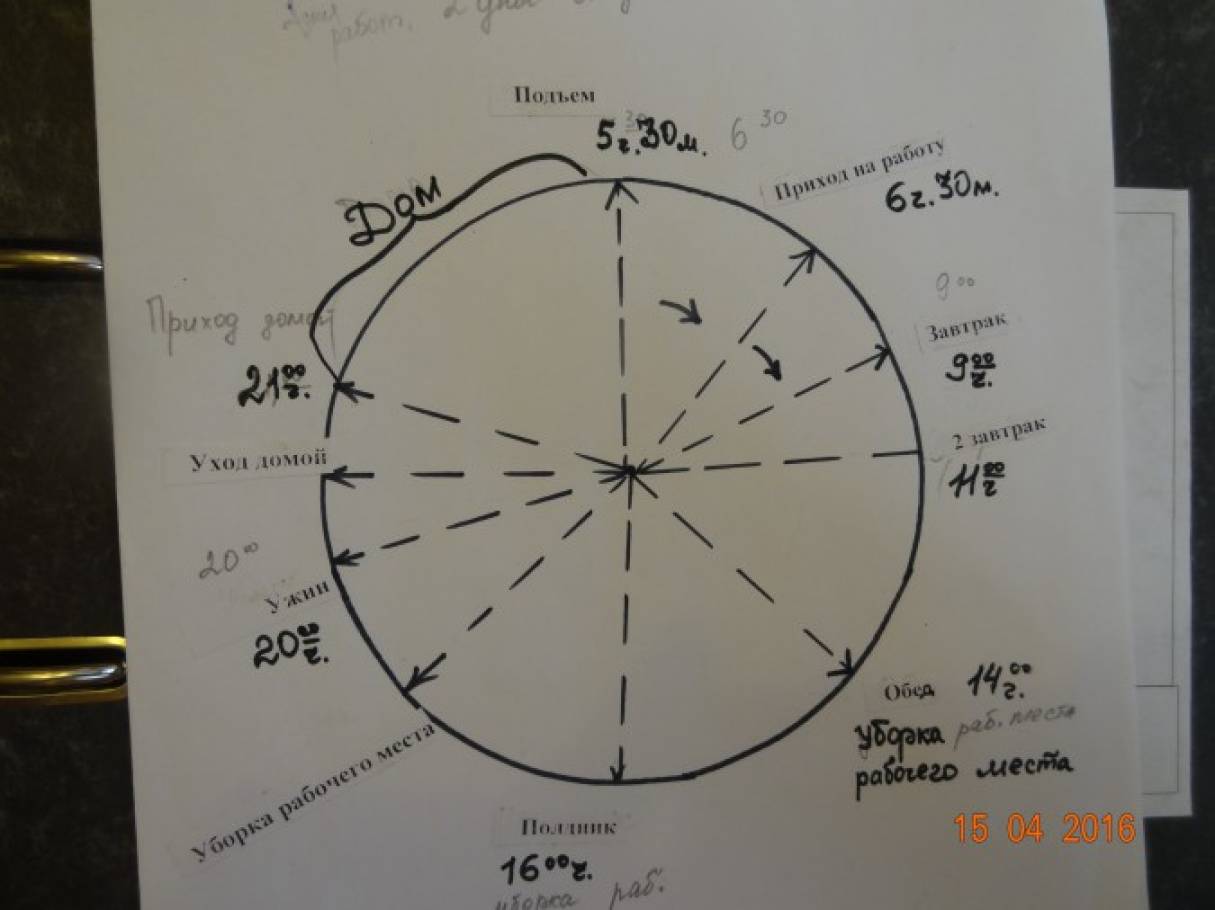 работ. 2
Подъем
5 ч. 30 м. 6 30
Приход на работу
6 ч. 30 м.
Дом
9 00
Завтрак
9 00 ч.
Приход домой
21 00 ч.
2 завтрак
11 00 ч
Уход домой
20 00
Ужин
20 00 ч.
Обед 14 00 ч.
уборка раб. места
рабочего места
Уборка рабочего места
Полдник
16 00 ч.
уборка раб.
15 04 2016